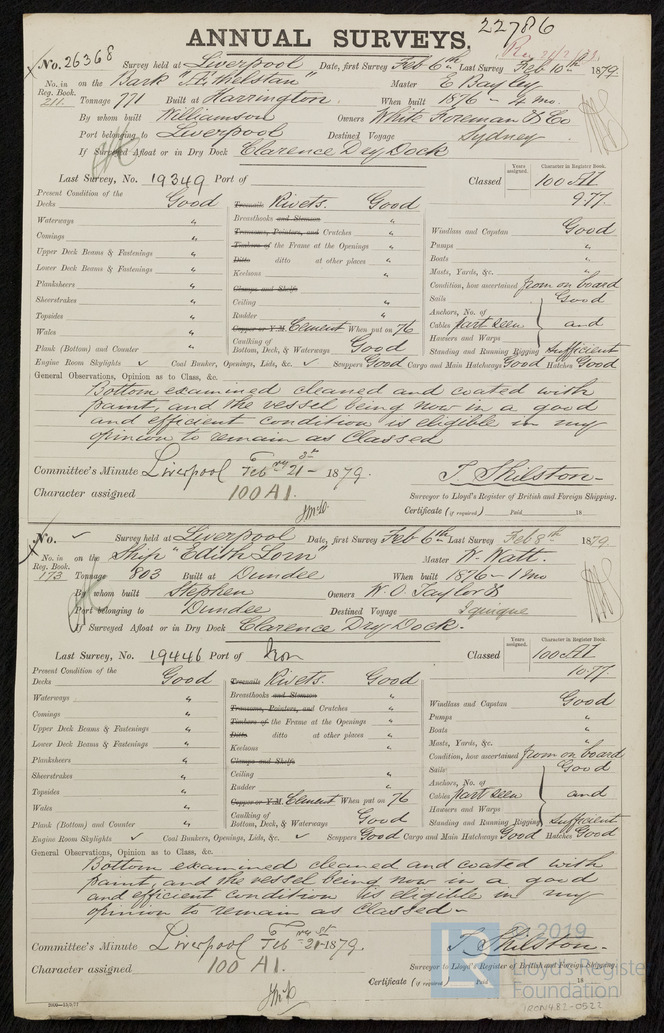 22786
ANNUAL SURVEYS.
No. 26368 Survey held at Liverpool Date, first Survey Feb 6th Last Survey Feb 10th 1879
No. in Reg. Book. on the Bark "Athelstan" Master E Bayley
211 Tonnage 771 Built at Harrington When built 1876 - 4 mo.
By whom built Williamson Owners White Foreman & Co
Port belonging to Liverpool Destined Voyage Sydney
If Surveyed Afloat or in Dry Dock Clarence Dry Dock
Years assigned. Character in Register Book.
Last Survey, No. 19349 Port of Classed 100 A1
9.77.
Present Condition of the
Decks Good Treenails Rivets. Good
Waterways " Breasthooks and Stemson " Windlass and Capstan Good
Comings " Transoms, Pointers, and Crutches " Pumps "
Upper Deck Beams & Fastenings " Timbers of the Frame at the Openings " Boats "
Lower Deck Beams & Fastenings " Ditto ditto at other places " Masts, Yards, &c. "
Planksheers " Keelsons " Condition, how ascertained from on board
Sheerstrakes " Clamps and Shelfs Sails Good
Topsides " Ceiling " Anchors, No. of
Wales " Rudder " Cables part seen and
Plank (Bottom) and Counter " Copper or Y.M. Cement When put on 76 Hawsers and Warps
Caulking of Bottom, Deck, & Waterways Good Standing and Running Rigging Sufficient
Engine Room Skylights ✓ Coal Bunker, Openings, Lids, &c. ✓ Scuppers Good Cargo and Main Hatchways Good Hatches Good
General Observations, Opinion as to Class, &c.
Bottom examined cleaned and coated with
paint, and the vessel being now in a good
and efficient condition is eligible in my
opinion to remain as Classed
Committee's Minute Liverpool Feb 21 - 1879. T. Shilston.
Character assigned 100 A1. Surveyor to Lloyd's Register of British and Foreign Shipping.
Certificate (if required) Paid 18
No. ✓ Survey held at Liverpool Date, first Survey Feb 6th Last Survey Feb 8th 1879
No. in Reg. Book. on the Ship "Edith Lorn" Master W. Watt.
173 Tonnage 803 Built at Dundee When built 1876 - 1 mo
By whom built Stephen Owners W. O. Taylor &
Port belonging to Dundee Destined Voyage Iquique
If Surveyed Afloat or in Dry Dock Clarence Dry Dock.
Years assigned. Character in Register Book.
Last Survey, No. 19446 Port of Iron Classed 100 A1
10.77.
Present Condition of the
Decks Good Treenails Rivets. Good
Waterways " Breasthooks and Stemson " Windlass and Capstan Good
Comings " Transoms, Pointers, and Crutches " Pumps "
Upper Deck Beams & Fastenings " Timbers of the Frame at the Openings " Boats "
Lower Deck Beams & Fastenings " Ditto ditto at other places " Masts, Yards, &c. "
Planksheers " Keelsons " Condition, how ascertained from on board
Sheerstrakes " Clamps and Shelfs Sails Good
Topsides " Ceiling " Anchors, No. of
Wales " Rudder " Cables part seen and
Plank (Bottom) and Counter " Copper or Y.M. Cement When put on 76 Hawsers and Warps
Caulking of Bottom, Deck, & Waterways Good Standing and Running Rigging Sufficient
Engine Room Skylights ✓ Coal Bunkers, Openings, Lids, &c. ✓ Scuppers Good Cargo and Main Hatchways Good Hatches Good
General Observations, Opinion as to Class, &c.
Bottom examined cleaned and coated with
paint, and the vessel being now in a good
and efficient condition is eligible in my
opinion to remain as Classed -
Committee's Minute Liverpool Feb 21 - 1879. T. Shilston.
Character assigned 100 A1. Surveyor to Lloyd's Register of British and Foreign Shipping.
Certificate (if required) Paid 18
© 2019
LR
Lloyd's Register
Foundation
IRON482-0522